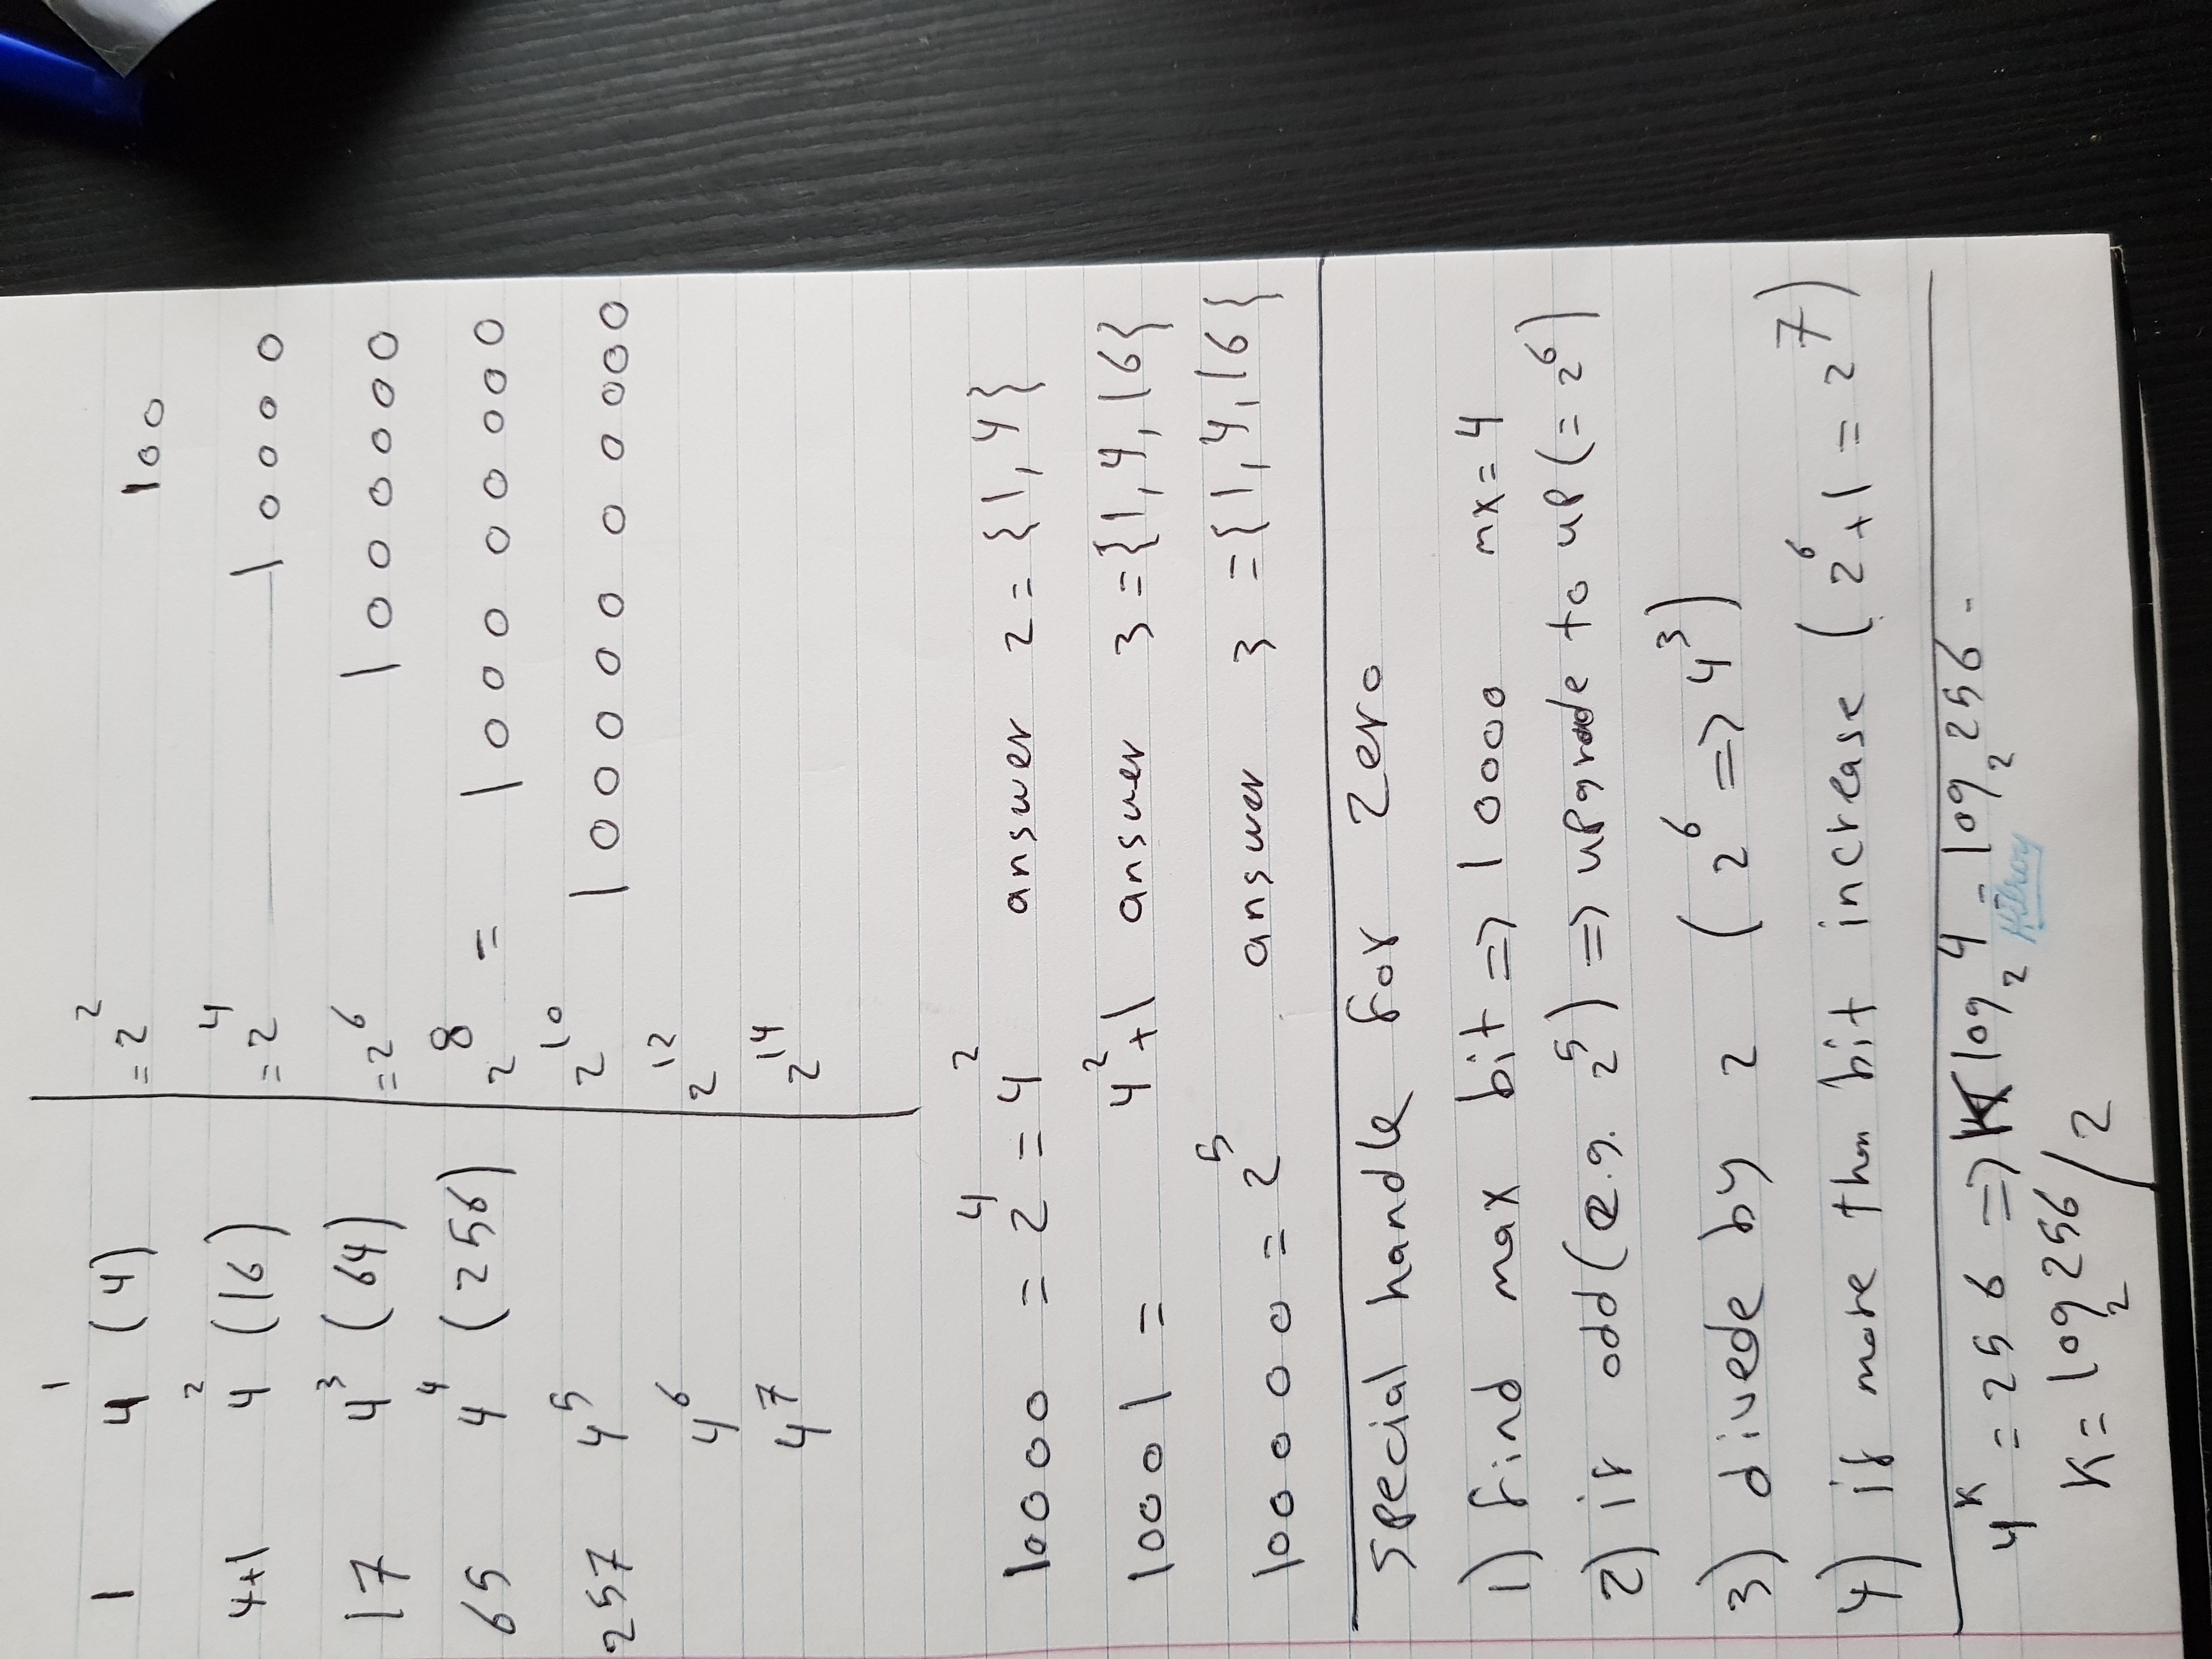 1 4^1 (4) = 2^2 100
4+1 4^2 (16) = 2^4 10000
17 4^3 (64) = 2^6 1000000
65 4^4 (256) 2^8 = 100000000
257 4^5 2^10 10000000000
4^6 2^12
4^7 2^14
10000 = 2^4 = 4^2 answer 2 = {1, 4}
10001 = 4^2+1 answer 3 = {1, 4, 16}
100000 = 2^5 answer 3 = {1, 4, 16}
special handle for zero
1) find max bit => 10000 mx = 4
2) if odd (e.g. 2^5) => upgrade to up (= 2^6)
3) divede by 2 (2^6 => 4^3)
4) if more than bit increase (2^6+1 = 2^7)
4^k = 256 => K log_2 4 = log_2 256 -
Hilroy
K = log_2 256 / 2